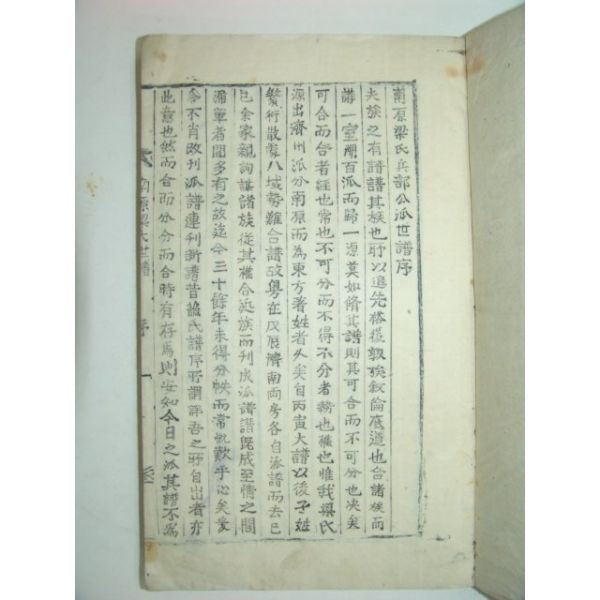 南原梁氏兵部公派世譜序
夫族之有譜譜其族也所以追先裕後敦族敍倫底道也合諸族而
講一室溯百派而歸一源莫如脩其譜則其可合而不可分也决矣
可合而合者經也常也不可分而不得不分者務也權也惟我梁氏
源出濟州派分南原而為東方著姓者久矣自丙寅大譜以後子姓
繁衍散處八域勢難合譜故粵在戊辰濟南両房各自派譜而去己
巳余家親詢謀諸族從其權合近族而刊成派譜譜既成至情之間
漏單者間多有之故迄今三十餘年未得分帙而常歉歎乎心矣
今不肖改刊派譜連刊新譜昔蘓氏譜序所謂詳吾之所自出者亦
此意也然而合而分分而合時有存焉則安知今日之派其譜不為
南原梁氏世譜
序
一